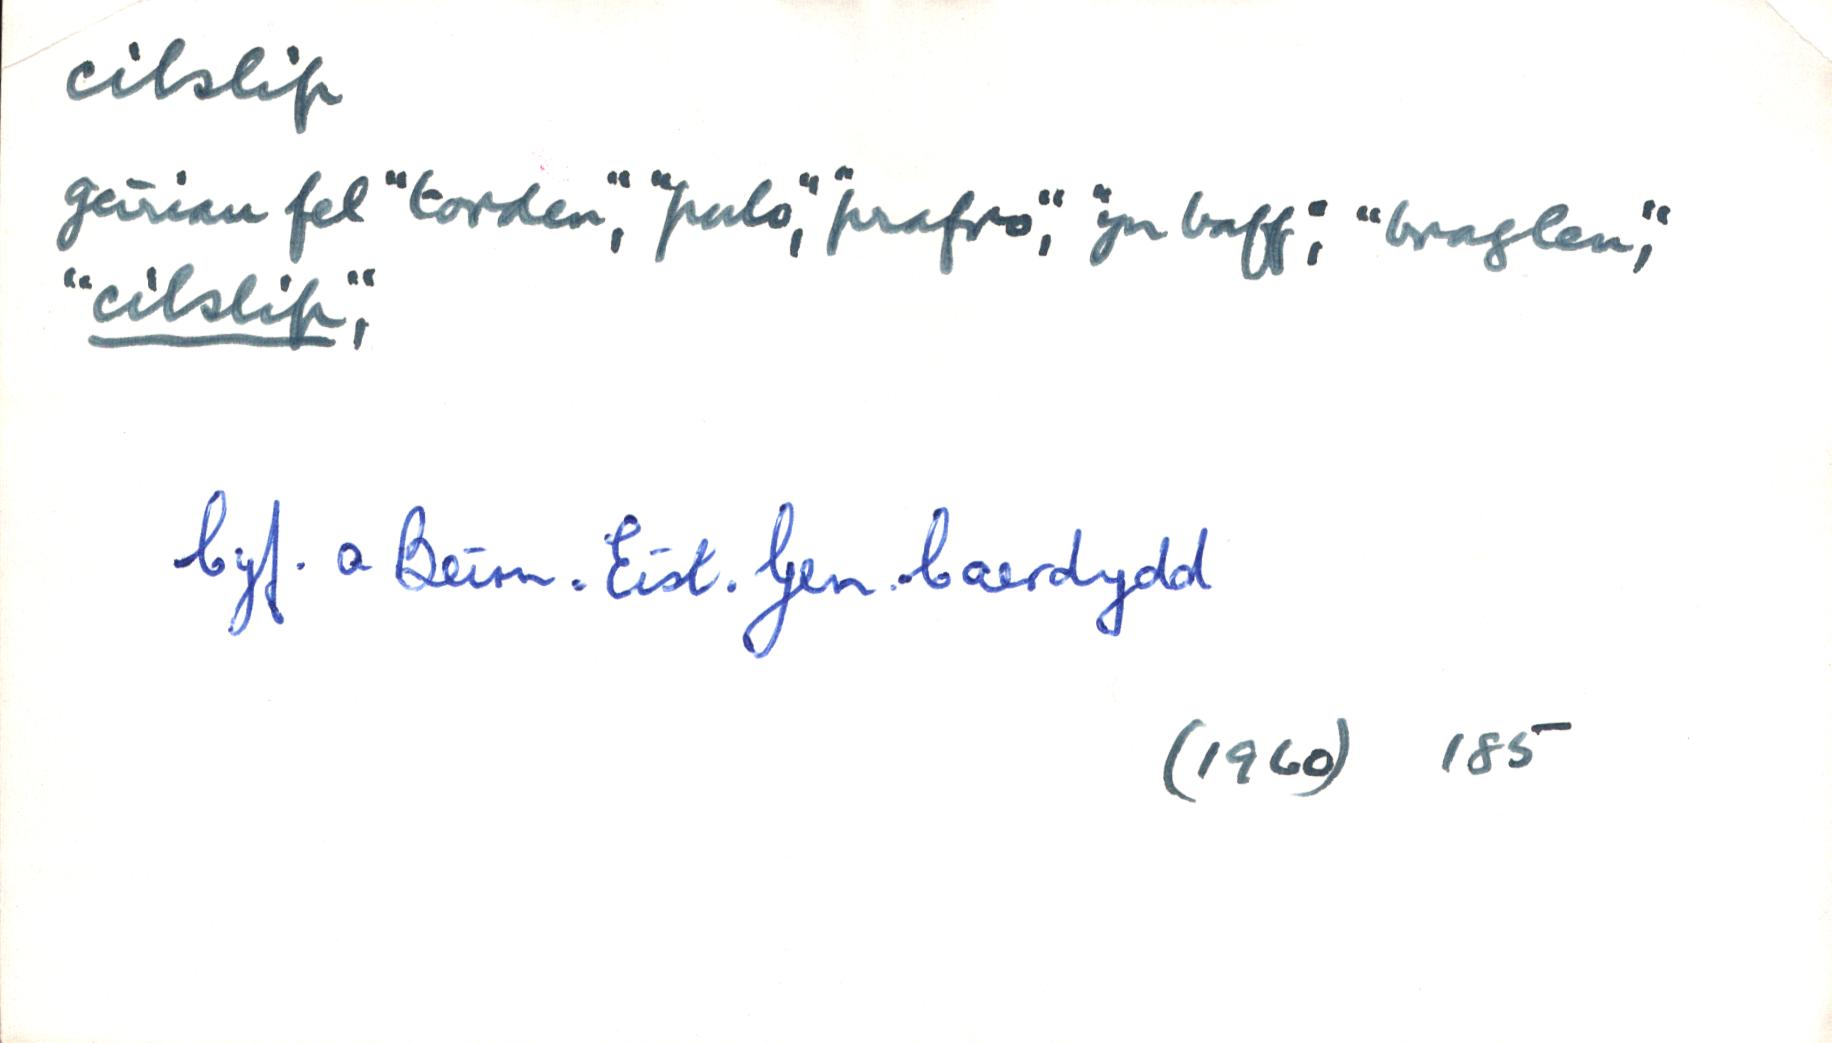 cilslip
geiriau fel "torden," "pulo," "prafro," "yn baff," "braglen,"
"cilslip,"
Cyf. a Beirn. Eist. Gen. Caerdydd
(1960) 185